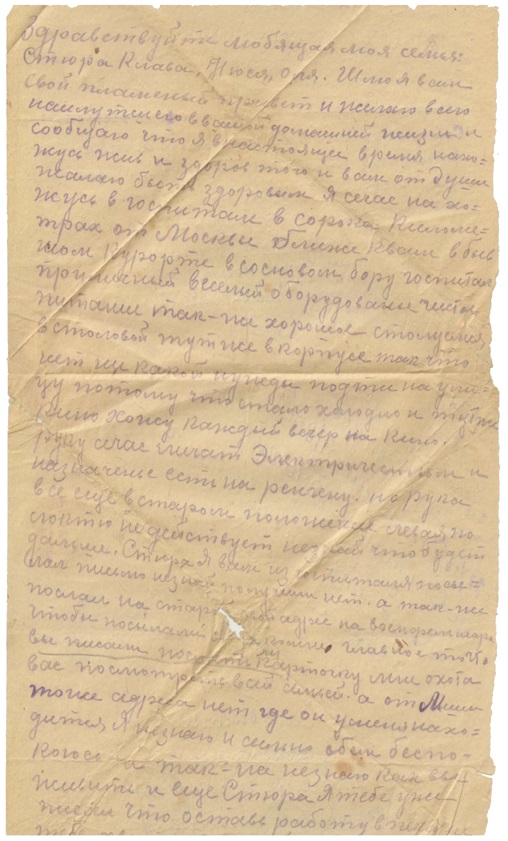 Здравствуйте любящая моя семья:
Стюра Клава, Нюся, Оля. Шлю я вам
свой пламеный привет и желаю всего
наилутшего в вашей домашней жизни и
сообщаю что я в настоящие время нахо=
жусь жив и здоров того и вам от души
желаю быть здоровым я сечас на хо-
жусь в госпитале в сорока киломе=
трах от Москвы ближе к вам в быв
шом курорте в сосновом бору госпитал
прилисный веселый оборудованы чисты
питание так-же хорошое столуемся
в столовой тут же в корпусе так что
нет ни какой нужды подти на ули=
цу потому что стало холодно и тут же
кино хожу каждый вечер на кино.
руку сечас личат Электричеством и
назначенье есть на ренгену. но рука
все еще в старом положение левая, по
локтю не действует незнай что будет
дальше. Стюра я вам из госпиталя посы=
лал письмо незнай получили нет. а так-же
послал на старой свой адрес на
чтобы посылали главное то что
вы писали карточку мне охота
вас посмотреть всей семьей. а от Миши
тоже адреса нет где он у меня нахо=
дится я незнаю и сильно об ем беспо-
коюсь а так-же незнаю как вы
живити и еще Стюра Я тебе уже
писал что оставь работу в